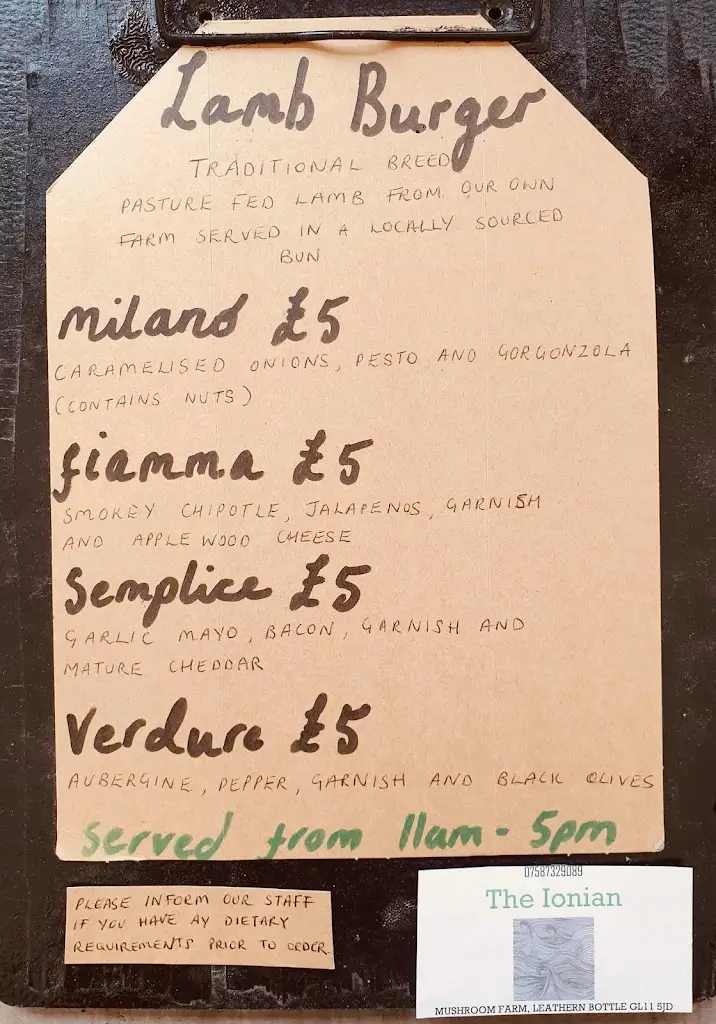 Lamb Burger
TRADITIONAL BREED
PASTURE FED LAMB FROM OUR OWN
FARM SERVED IN A LOCALLY SOURCED
BUN
milano £5
CARAMELISED ONIONS, PESTO AND GORGONZOLA
(CONTAINS NUTS)
fiamma £5
SMOKEY CHIPOTLE, JALAPENOS, GARNISH
AND APPLE WOOD CHEESE
Semplice £5
GARLIC MAYO, BACON, GARNISH AND
MATURE CHEDDAR
Verdure £5
AUBERGINE, PEPPER, GARNISH AND BLACK OLIVES
Served from 11am - 5pm
PLEASE INFORM OUR STAFF
IF YOU HAVE AY DIETARY
REQUIREMENTS PRIOR TO ORDER.
07587329089
The Ionian
MUSHROOM FARM, LEATHERN BOTTLE GL11 5JD